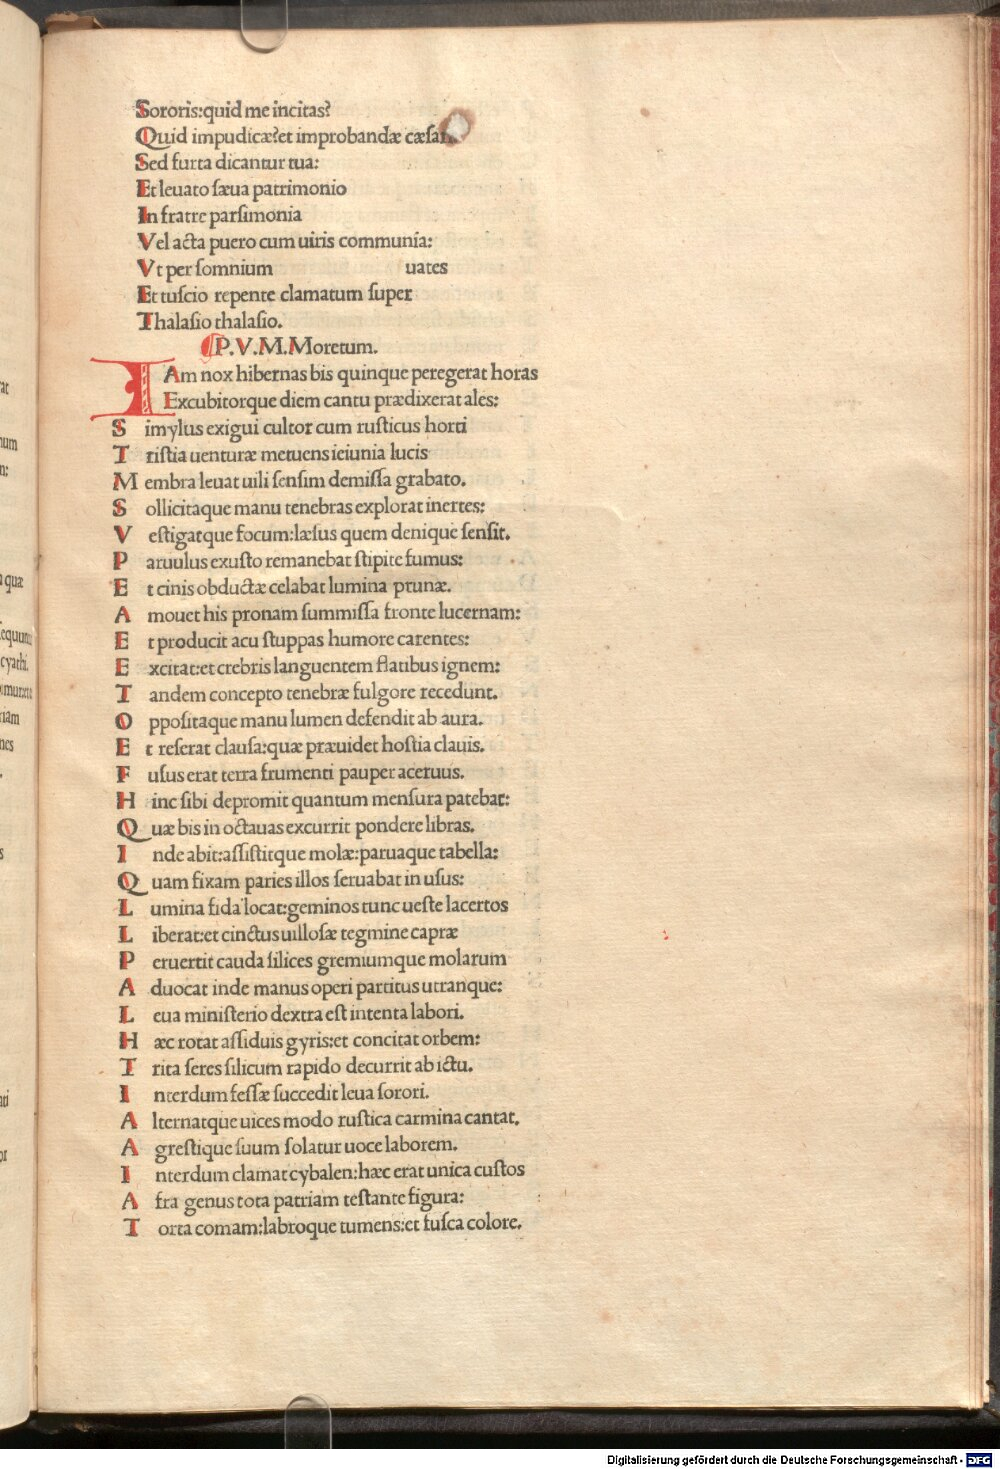 Sororis:quid me incitas?
Quid impudicæ?et improbandæ cæsar
Sed furta dicantur tua:
Et leuato sæua patrimonio
In fratre parsimonia
Vel acta puero cum uiris communia:
Vt per somnium uates
Et tuscio repente clamatum super
Thalasio thalasio.
P.V.M.Moretum.
IAm nox hibernas bis quinque peregerat horas
Excubitorque diem cantu prædixerat ales:
Simylus exigui cultor cum rusticus horti
Tristia uenturæ metuens ieiunia lucis
Membra leuat uili sensim demissa grabato.
Sollicitaque manu tenebras explorat inertes:
Vestigatque focum:læsus quem denique sensit.
Paruulus exusto remanebat stipite fumus:
Et cinis obductæ celabat lumina prunæ.
Amouet his pronam summissa fronte lucernam:
Et producit acu stuppas humore carentes:
Excitat:et crebris languentem flatibus ignem:
Tandem concepto tenebræ fulgore recedunt.
Oppositaque manu lumen defendit ab aura.
Et reserat clausa:quæ præuidet hostia clauis.
Fusus erat terra frumenti pauper aceruus.
Hinc sibi depromit quantum mensura patebat:
Quæ bis in octauas excurrit pondere libras.
Inde abit:assistitque molæ:paruaque tabella:
Quam fixam paries illos seruabat in usus:
Lumina fida locat:geminos tunc ueste lacertos
Liberat:et cinctus uillosæ tegmine capræ
Peruertit cauda silices gremiumque molarum
Aduocat inde manus operi partitus utranque:
Leua ministerio dextra est intenta labori.
Hæc rotat assiduis gyris:et concitat orbem:
Trita seres silicum rapido decurrit ab ictu.
Interdum fessæ succedit leua sorori.
Alternatque uices modo rustica carmina cantat.
Agrestique suum solatur uoce laborem.
Interdum clamat cybalen:hæc erat unica custos
Afra genus tota patriam testante figura:
Torta comam:labroque tumens:et fusca colore.
Digitalisierung gefördert durch die Deutsche Forschungsgemeinschaft - DFG